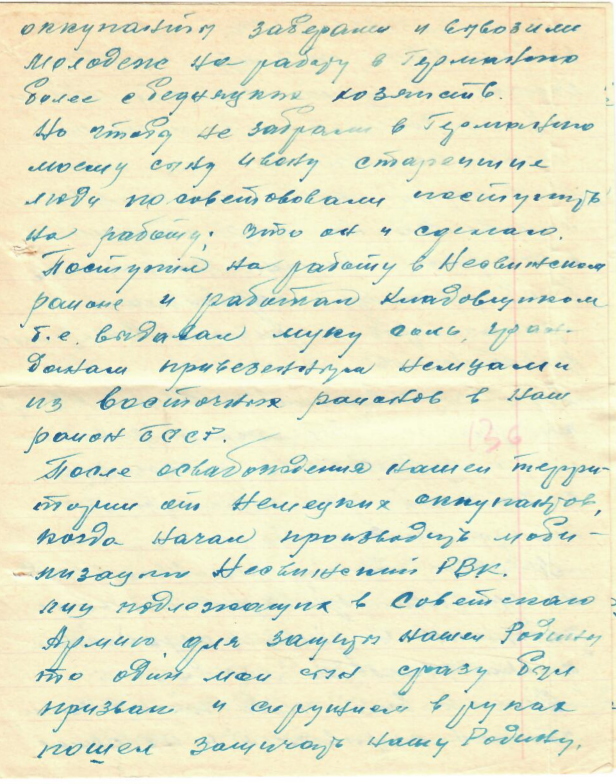 оккупанты заберали и вывозили
молодеж на работу в Германию
более с бедняцких хозяйств.
Но чтобы не забрали в Германию
моему сыну Ивону старейшие
люди посоветовали поступить
на работу; это он и сделал.
Поступил на работу в Несвижском
районе и работал кладовщиком
т.е. выдавал муку соль, граж-
данам привезенную немцами
из восточных районов в наш
район БССР.
136
После освабождения нашей терри-
тории от немецких оккупантов,
когда начал производить моби-
лизацию Несвижский РВК.
лиц подлежащих в Советскаю
Армию, для защиты нашей Родины
то один мой сын сразу был
призван и с оружием в руках
пошел защичать нашу Родину.